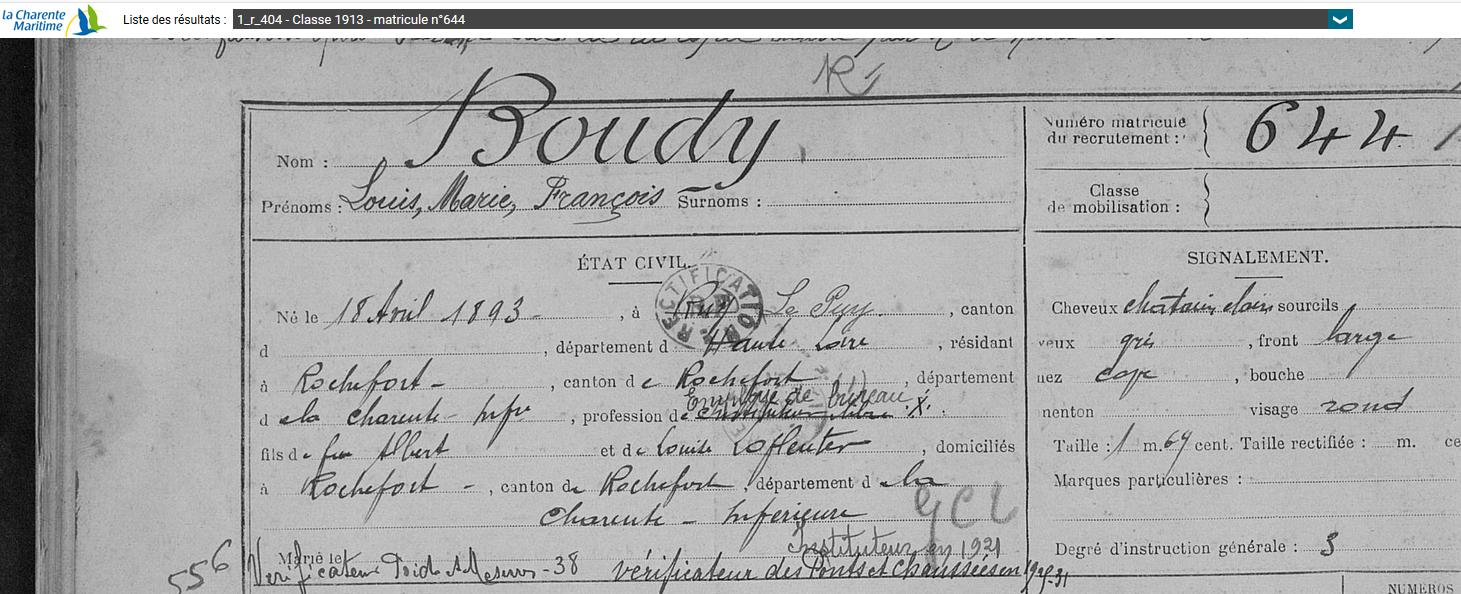 la Charente
Maritime
Liste des résultats : 1_r_404 - Classe 1913 - matricule n°644
Ré
Nom : Boudy
Prénoms : Louis, Marie, François Surnoms :
Numéro matricule
du recrutement : 644
Classe
de mobilisation :
ÉTAT CIVIL.
RECTIFICATION
Né le 18 Avril 1893 - , à Le Puy , canton
d , département d Haute Loire , résidant
à Rochefort - , canton de Rochefort , département
Employé de bureau X.
d e la Charente - Infre , profession de
fils de feu Albert et de Louise , domiciliés
à Rochefort - , canton de Rochefort , département d e la
Charente - Inférieure
GCL
Instituteur en 1921
Marié le
556 Vérificateur Poids et Mesures - 38 vérificateur des Ponts et Chaussées en
SIGNALEMENT.
Cheveux chatain clair sourcils
yeux gris , front large
nez , bouche
menton visage rond
Taille : 1 m. 69 cent. Taille rectifiée : m. ce
Marques particulières :
Degré d'instruction générale : 3
NUMÉROS